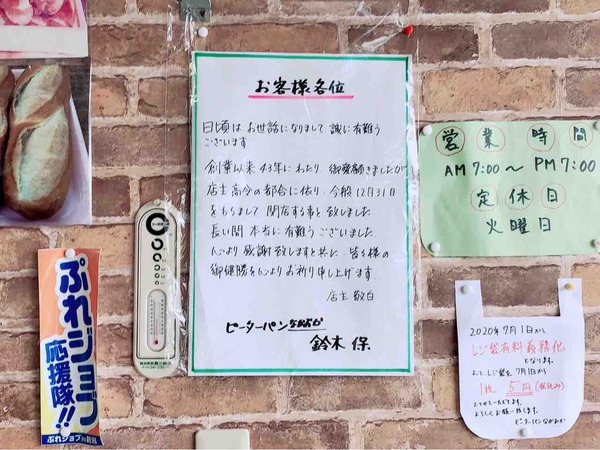 お客様各位
日頃はお世話になりまして誠に有難う
ございます
創業以来43年にわたり御愛顧きましたが
店主高令の都合に依り今般12月31日
をもちまして閉店する事と致しました
長い間本当に有難うございました
心より感謝致しますと共に皆々様の
御健勝を心よりお祈り申し上げます
店主敬白
ピーターパンながおか
鈴木保
営業時間
AM7:00〜PM7:00
定休日
火曜日
ぷれジョブ
応援隊!!
ぷれジョブ
2020年7月1日から
レジ袋有料義務化
となります。
レジ袋を7月1日から
1枚5円(税込み)
とさせていただきます。
よろしくお願い致します。
ピーターパンながおか